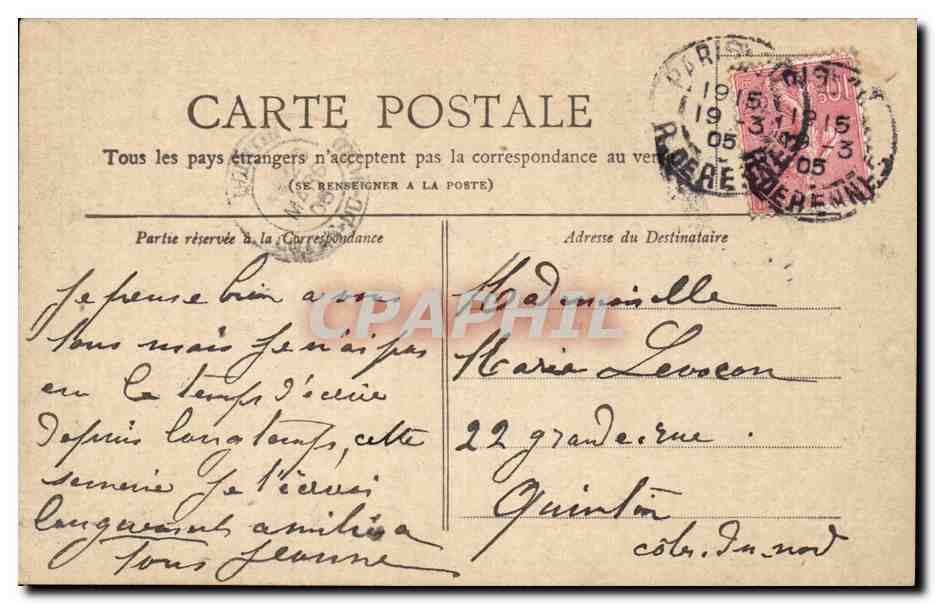 CARTE POSTALE
Tous les pays étrangers n'acceptent pas la correspondance au
(SE RENSEIGNER A LA POSTE)
PARIS
1915
19 -3
05
R. DERENNES
1915
19 -3
05
R. DERENNES
10
Partie réservée à la Correspondance
Adresse du Destinataire
Je pense bien a vous
tous mais je n'ai pas
eu le temps d'écrire
depuis longtemps, cette
semaine je t'écrirai
longuement amitiés a
tous Jeanne
Mademoiselle
Marie Levocon
22 grande rue.
Quintin
côtes-du-nord
CPAPHIL